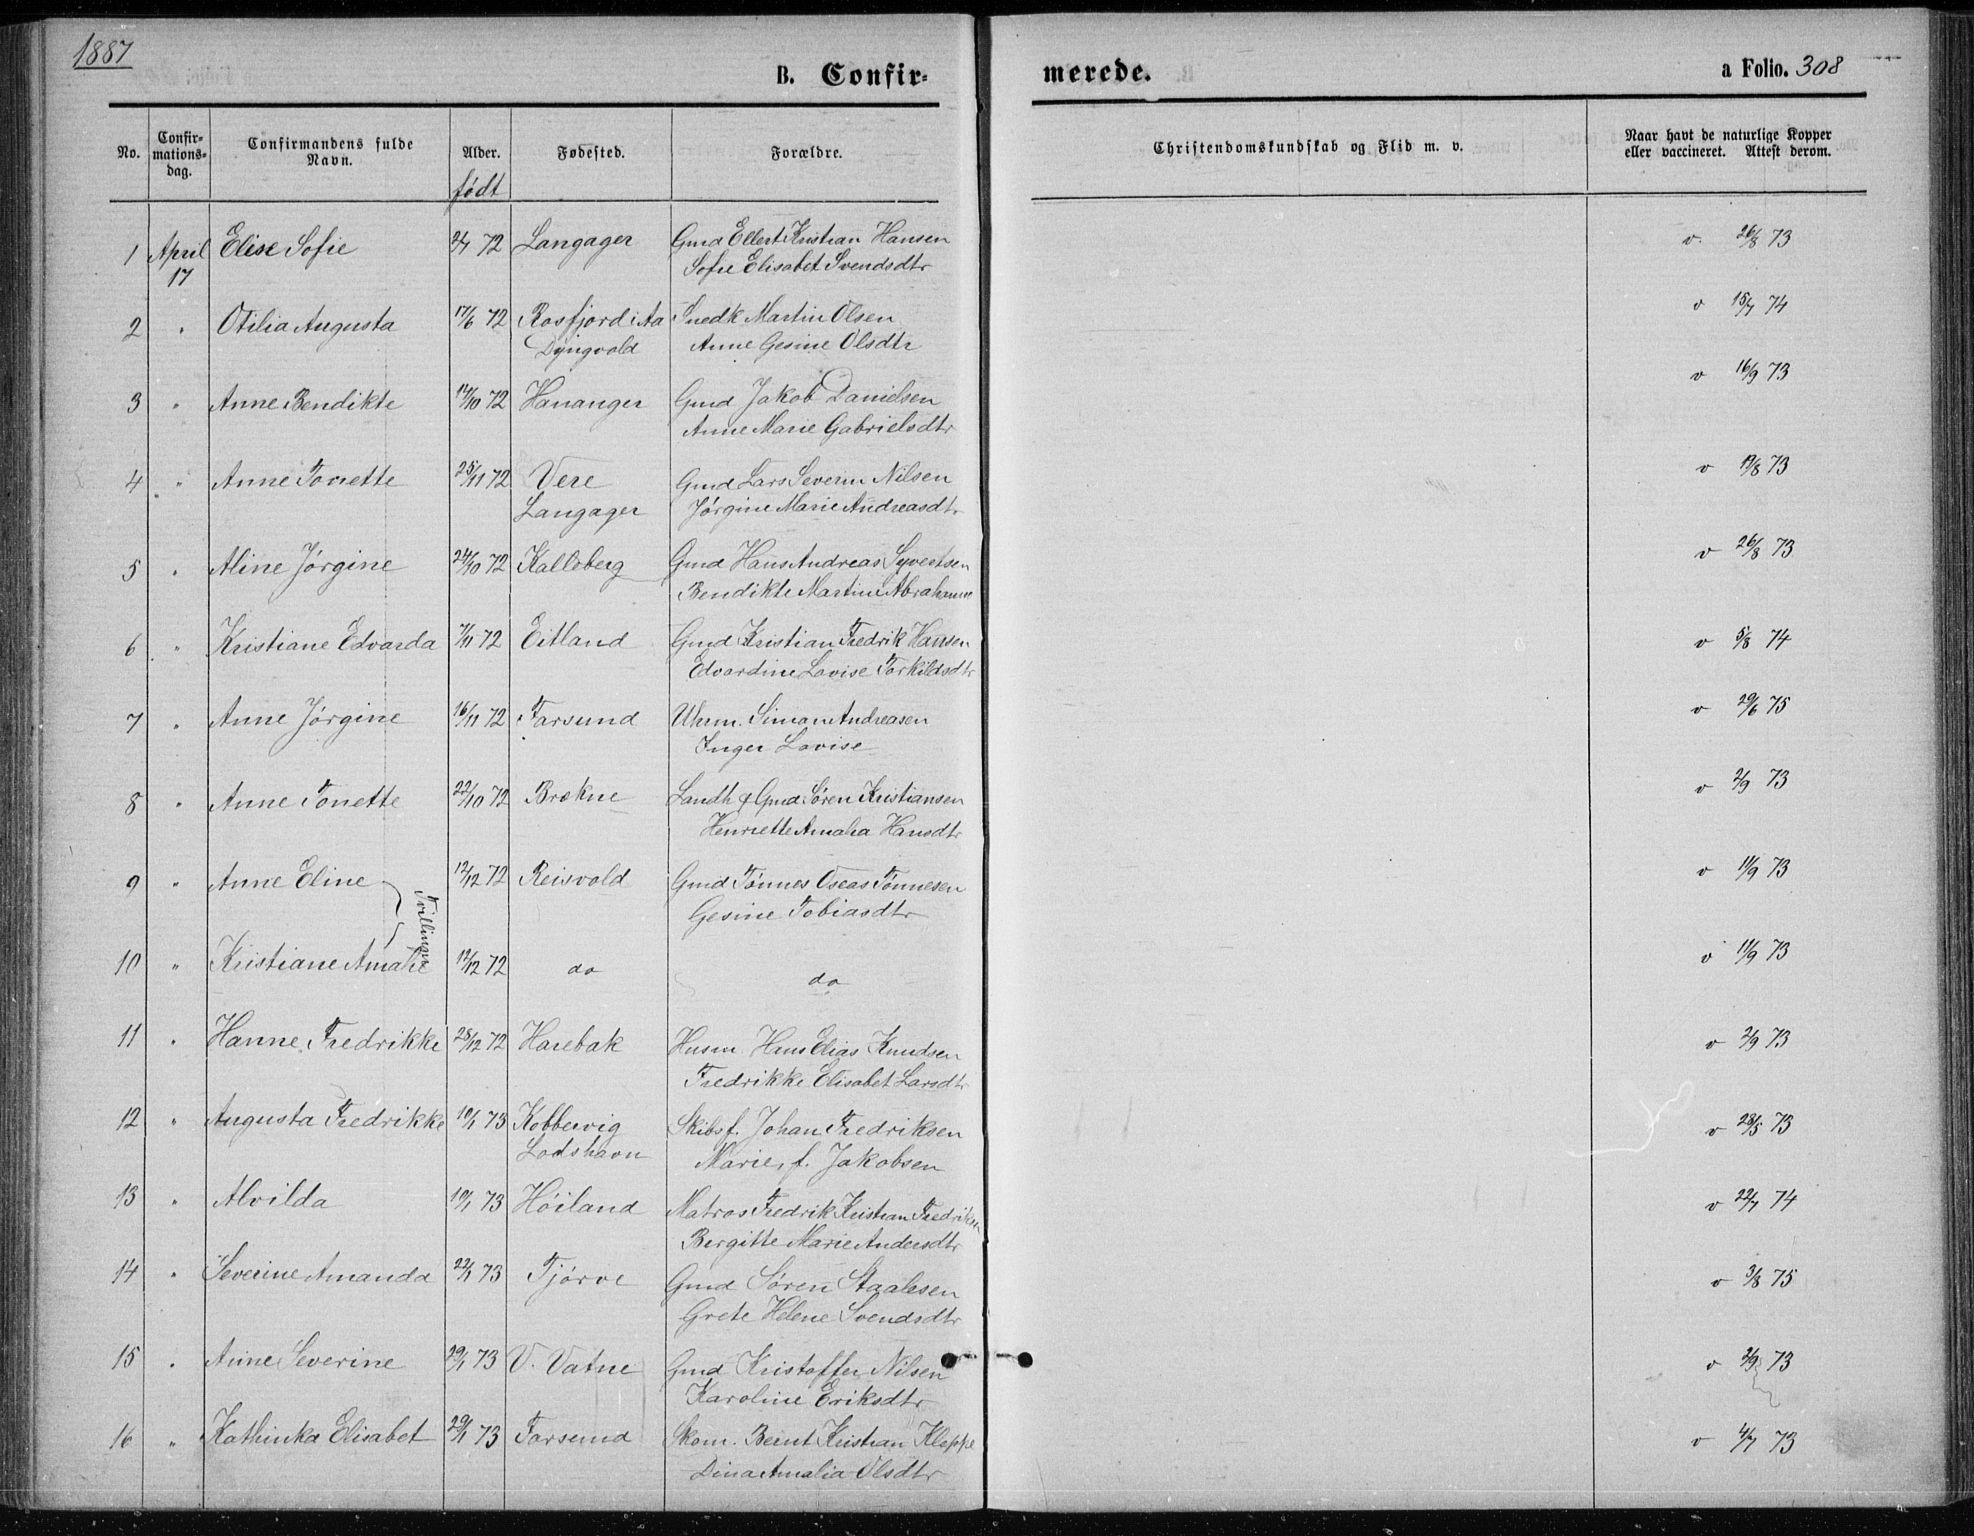 1887
B. Confir=
merede.
a Folio. 308
No.
Confir=
mations=
dag.
Confirmandens fulde
Navn.
Alder.
født
Fødested.
Forældre.
Christendomskundskab og Flid m. v.
Naar havt de naturlige Kopper
eller vaccineret. Attest derom.
1 April Elise Sofie 72 Langager Gmd Ellert Kristian Hansen v. 26/8 73
17 Sofie Elisabet Svendsdtr
2 " Otilia Augusta 17/6 72 Rosfjord i Aa Snedk Martin Olsen v 15/7 74
Dyngvold Anne Gesine Olsdtr
3 " Anne Bendikte 14/10 72 Hananger Gmd Jakob Danielsen v 16/9 73
Anne Marie Gabrielsdtr
4 " Anne Tonette 25/11 72 Vere Gmd Lars Severin Nilsen v 19/8 73
Langager Jørgine Marie Andreasdtr
5 " Aline Jørgine 24/10 72 Kalleberg Gmd Hans Andreas Syvertsen v 26/8 73
Bendikte Martine
6 " Kristiane Edvarda 7/11 72 Eitland Gmd Kristian Fredrik Hansen v 5/8 74
Edvardine Lovise Torkildsdtr
7 " Anne Jørgine 16/11 72 Farsund Uhrm. Simon Andreasen v 29/6 75
Inger Lovise
8 " Anne Tonette 22/10 72 Brekne Landh & Gmd Søren Kristiansen v 2/9 73
Henriette Amalia Hansdtr
9 " Anne Eline 12/12 72 Reisvold Gmd Tønnes Oseas Tønnesen v 11/9 73
Tvillinger
Gesine Tobiasdtr
10 " Kristiane Amalie 12/12 72 do do v 11/9 73
11 " Hanne Fredrikke 28/12 72 Harebak Husm. Hans Elias Knudsen v 2/9 73
Fredrikke Elisabet Larsdtr
12 " Augusta Fredrikke 10/1 73 Kobbervig Skibsf. Johan Fredriksen v 28/5 73
Lodshavn Marie, f. Jakobsen
13 " Alvilda 10/1 73 Høiland Matros Fredrik Kristian Fredriksen v 22/7 74
Birgitte Marie Andersdtr
14 " Severine Amanda 22/1 73 Tjørve Gmd Søren Staalesen v 3/8 75
Grete Helene Svendsdtr
15 " Anne Severine 29/1 73 V. Vatne Gmd Kristoffer Nilsen v 2/9 73
Karoline Eriksdtr
16 " Kathinka Elisabet 29/1 73 Farsund Skom. Bernt Kristian Kleppe v 4/7 73
Dina Amalia Olsdtr